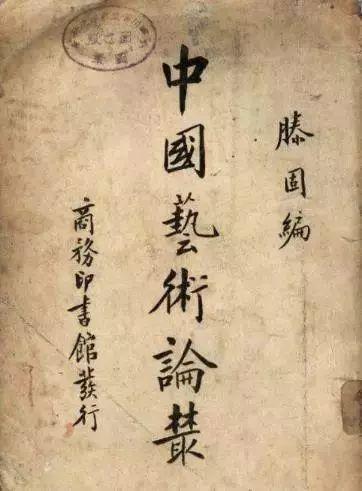 滕固編
中國藝術論叢
商務印書館發行